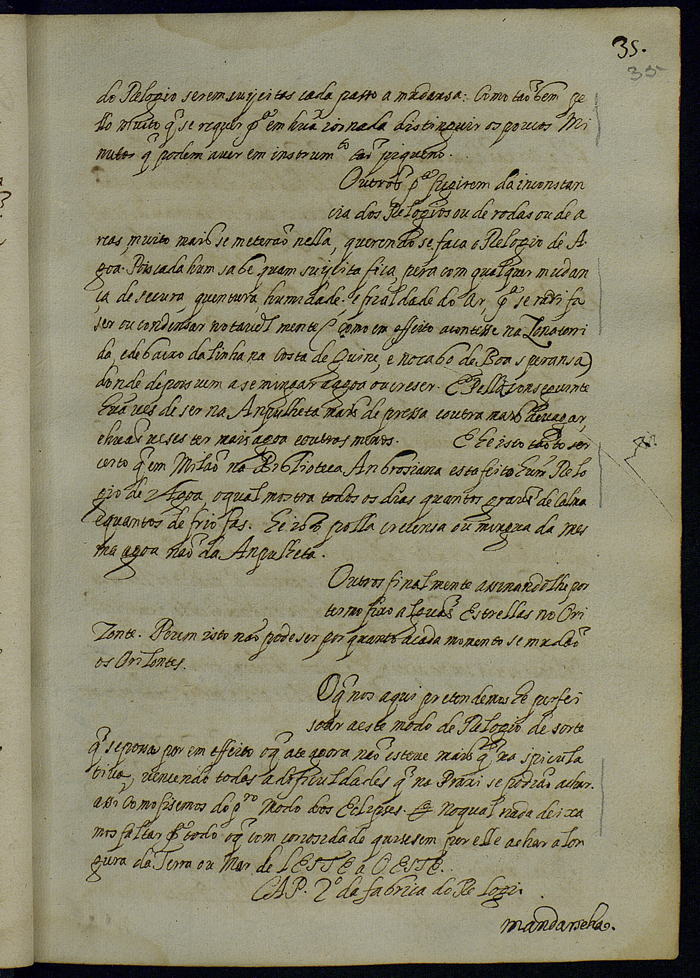 35.
35
do Relogio serem sujeitos cada passo a mudansa: Como tão bem pe
llo muito q̃ se requer pª em huã iornada distinguir os poucos Mi
nutos q̃ podem aver em instrum.to tão piqueno.
Outros pª fugirem da inconstan
cia dos Relogios ou de rodas ou de a
reas, muito mais se meterão nella, querendo se faca o Relogio de A
goa. Pois cada hum sabe quam sujeita fica, pera com qualquer mudan
ça, de secura, quentura humidade, e frialdade do Ar, q̃ se rarifa
ser ou condensar notavel mente (como em effeito acontesse na Zona torri
da, e debaixo da linha na costa de Guine, e no cabo de Boa speransa)
donde depois vem a se mingoar a agoa ou creser. E Pello conseguinte
huã ves de ser na Anpulheta mais de pressa e outra mais devagar,
e huãs veses ter mais agoa e outros menos. E he isto tão to ser
certo q̃ em Milão na Biblioteca Anbrosiana esta feito hum Relo
gio de Agoa o qual mostra todos os dias quantos graos de Calma
e quantos de frio fas. he isto polla cresensa ou mingua da mes
ma agoa não da Anpulheta.
Outros finalmente assinandolhe por
termo fixo alguãs Estrellas no Ori
zonte. Porem isto não pode ser por quanto a cada momento se mudão
os Orizontes.
O q̃ nos aqui pretendemos he perfei
soar a este modo de Relogio de sorte
q̃ se possa por em effeito o q̃ ate agora não esteve mais q̃ na specula
tiva, vencendo todas as difficuldades q̃ na Praxi se podião achar.
assi como fisemos do pr.o Modo dos Eclipses. No qual nada deixa
mos faltar pª todo o q̃ com coriosidade quisesem por elle achar a lon
gura da Terra ou Mar de LESTE a OESTE.
CAP. 2º da fabrica do Relogi.
mandarseha.